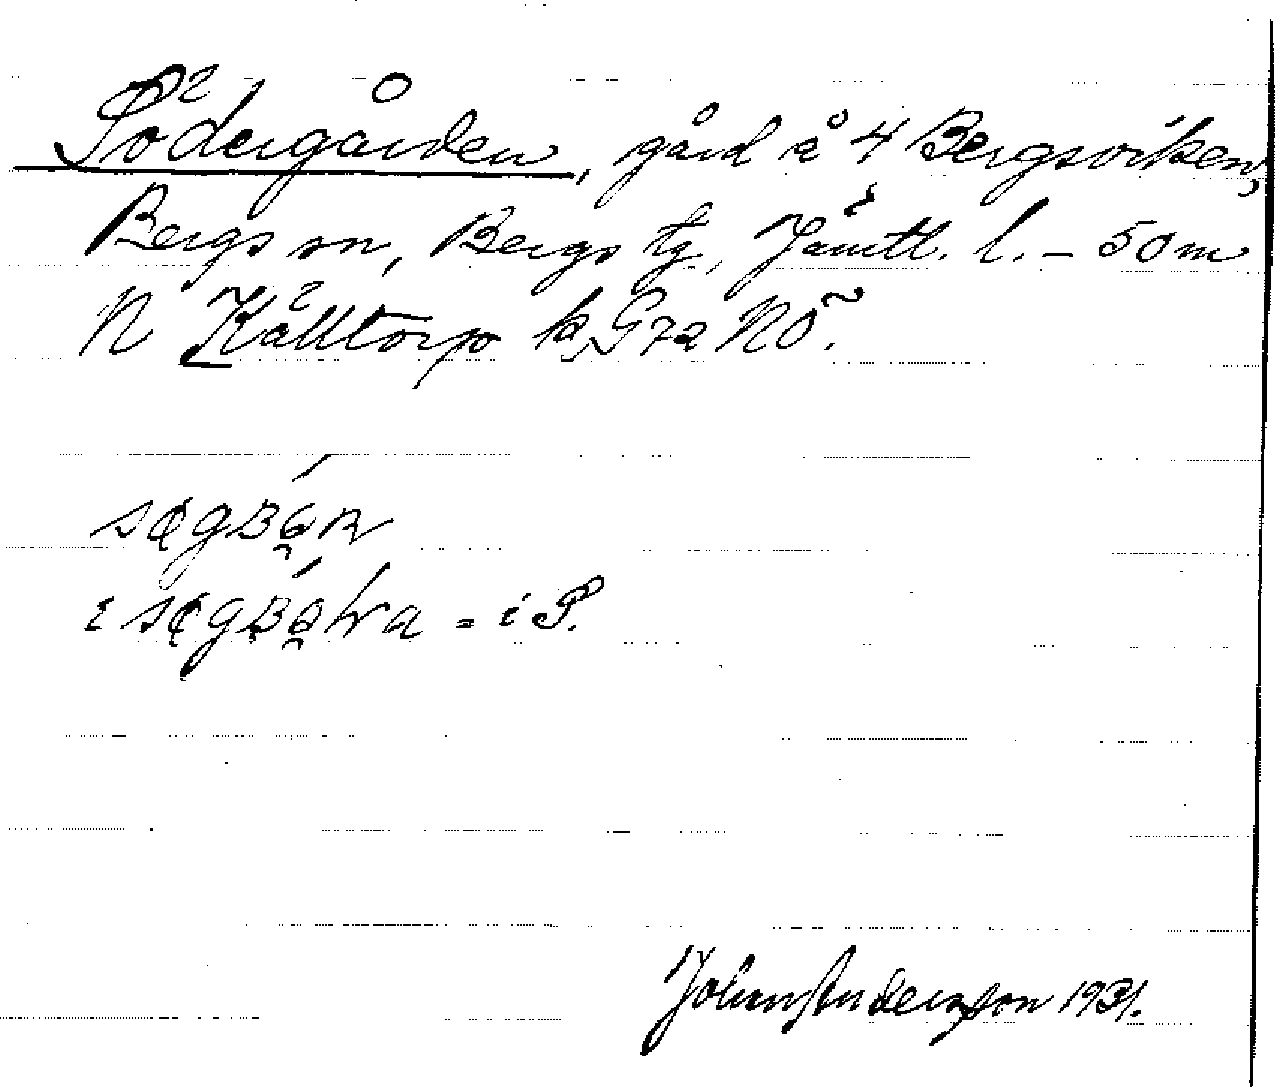 Södergården, gård å 4 Bergsviken,
Bergs sn, Bergs tg, Jämtl. l. – 50 m
N Källtorp k, G72 NÖ.
i = i S.
Johan Anderzson 1931.